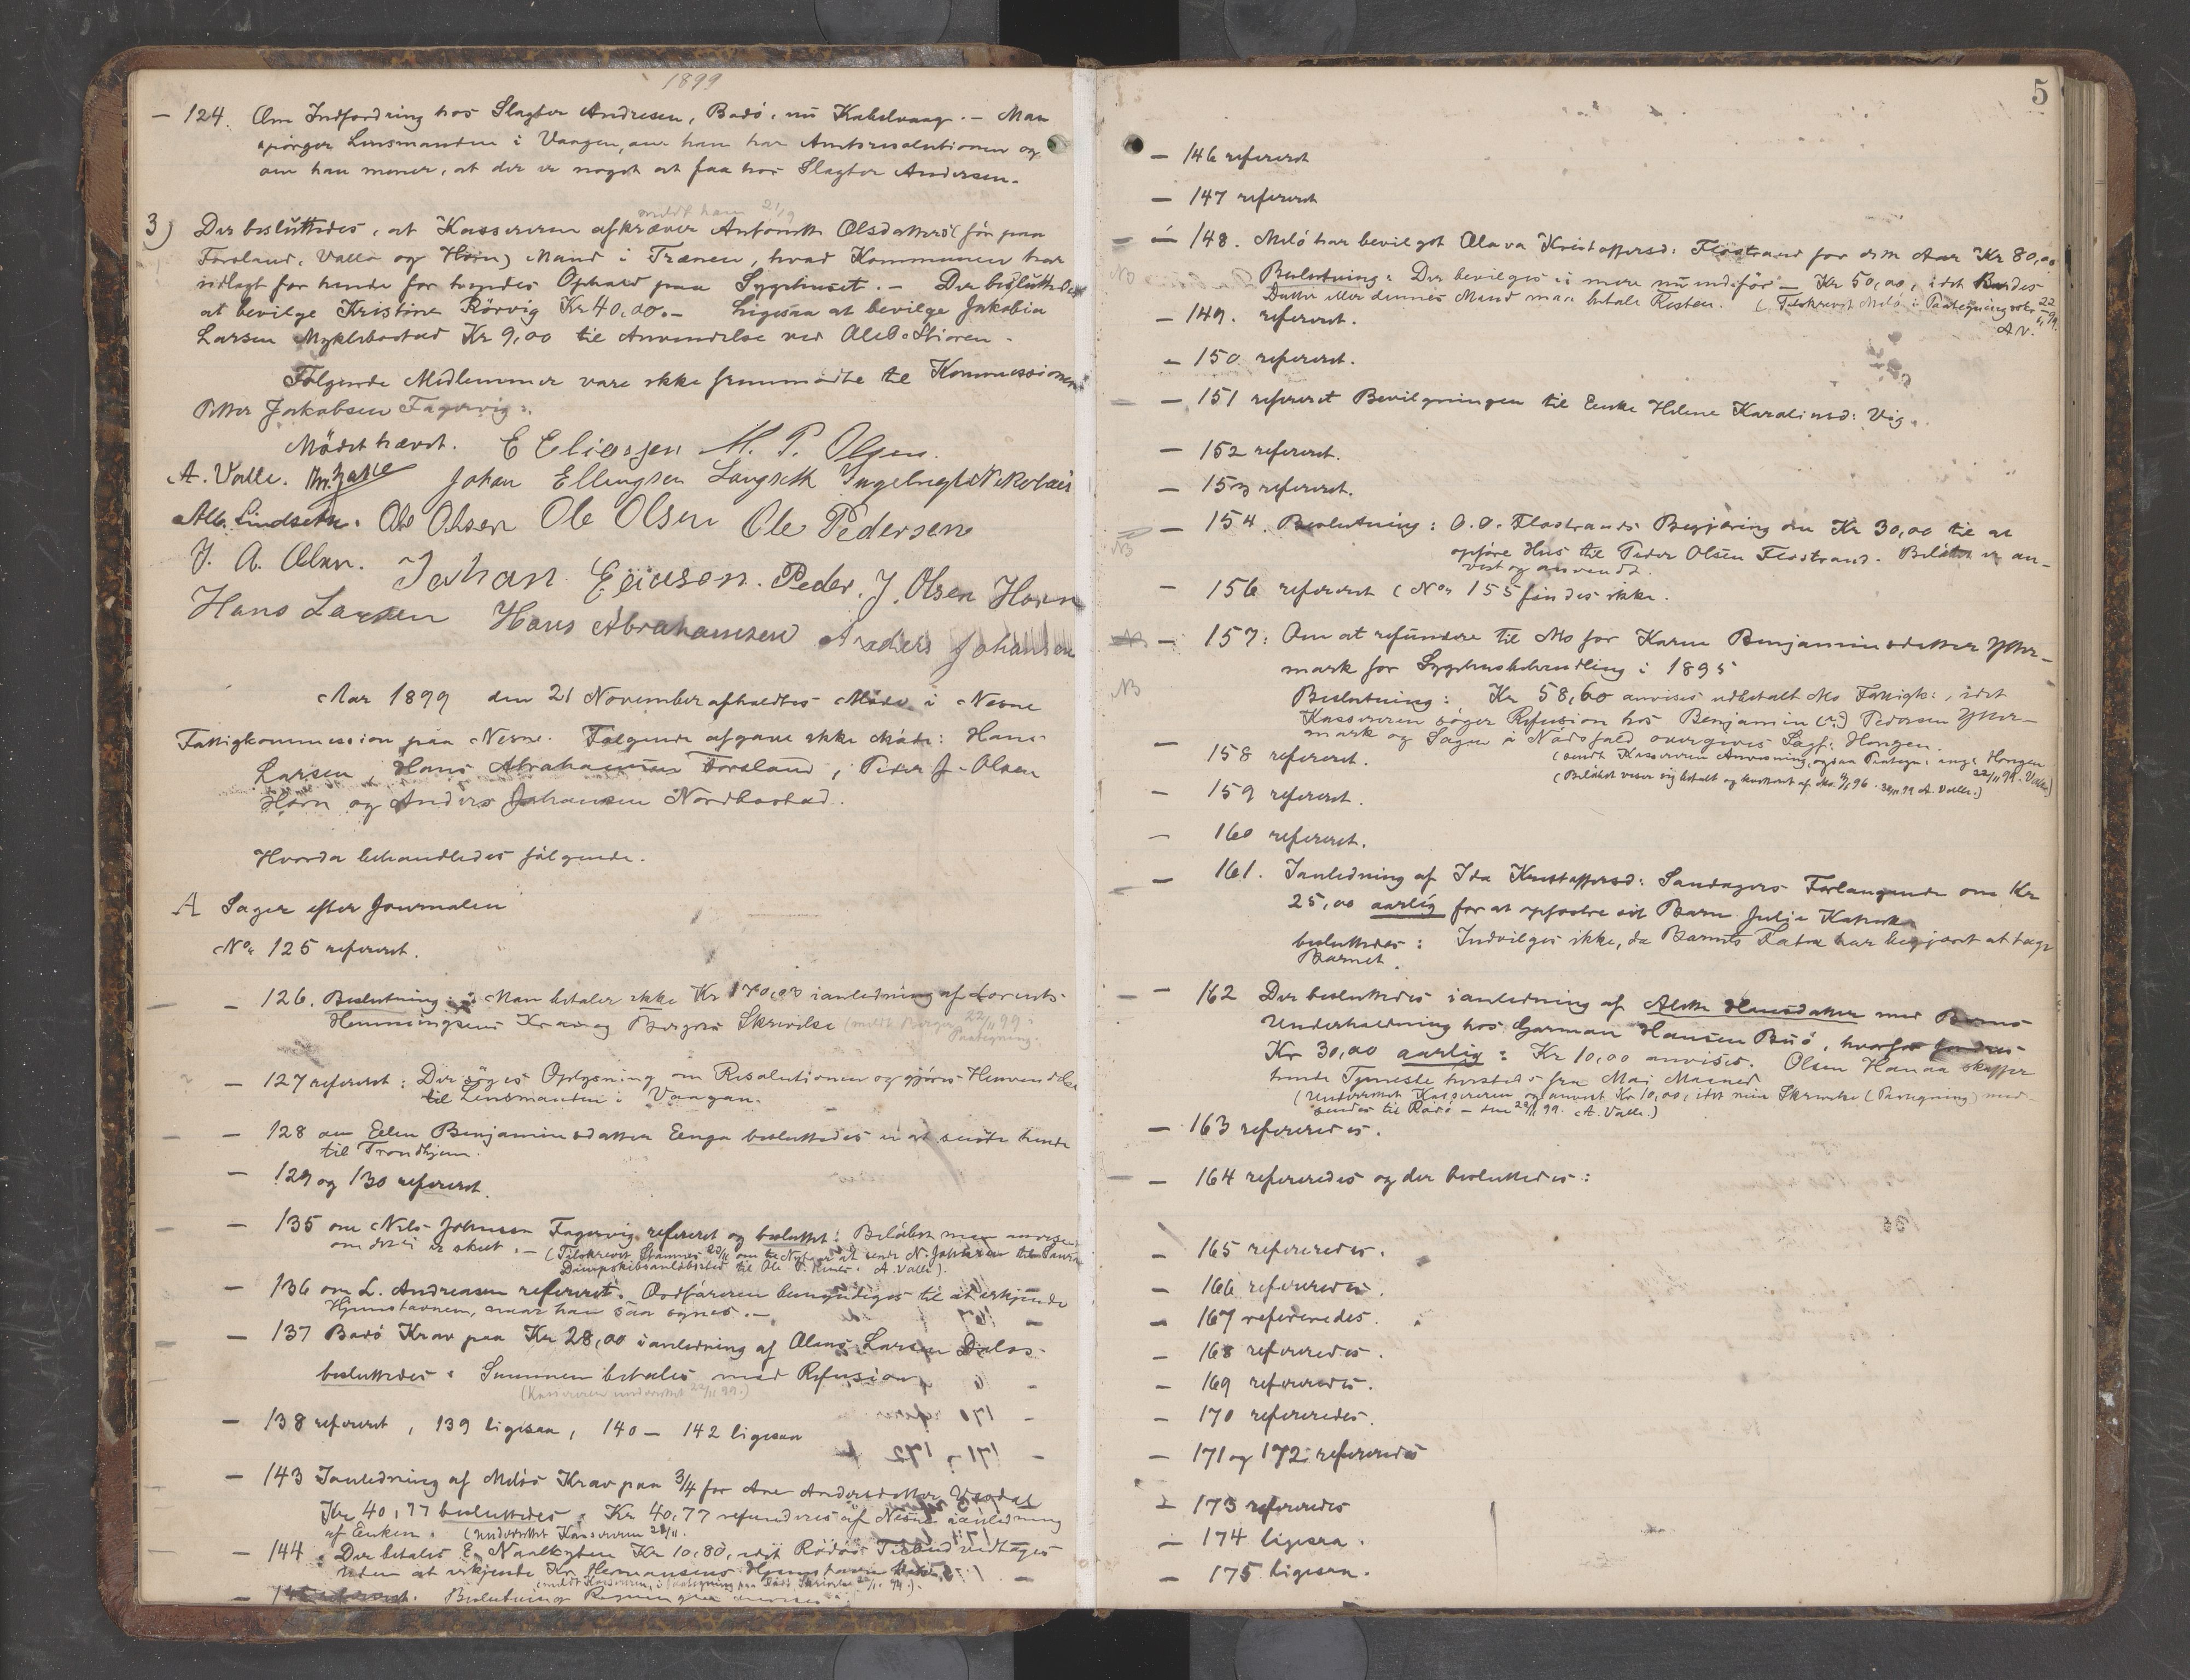 1899
— 124. Om Indfordring hos Slagter Andresen, Bodö, nu Kabelvaag. — Man
spörger Lensmanden i Vaagen, om han har Amtsresolutionen og
om han mener, at der er noget at faa hos Slagter Andersen.
3) Der besluttedes, at Kassereren afkræver Antonette Olsdatters (för paa
meldt ham 21/9
Forsland, Valla og Horn) Mand i Trænen, hvad Kommunen har
udlagt for hende for hendes Ophold paa Sygehuset. — Der besluttedes
at bevilge Kristine Rörvig Kr 40,00. — Ligesaa at bevilge Jakobia
Larsen Myklebostad Kr 9,00 til Anvendelse ved Ole
Fölgende Medlemmer vare ikke fremmödte til Kommissionen:
Petter Jakobsen Fagervig.
Mödet hævet. E Eliassen M. P. Olsen.
A. Valle. Johan Ellingsen Langseth Ingebrigt Nikolai
Alb. Lindseth. Ole Olsen Ole Olsen Ole Pedersen
J. A. Olsen. Johan Eliason. Peder. J. Olsen Horn
Hans Larsen Hans Abrahamsen Anders Johansen
Aar 1899 den 21 November afholdtes Möde i Nesne
Fattigkommission paa Nesne. Fölgende afgave ikke Möde: Hans
Larsen, Hans Abrahamsen Forsland, Peder J. Olsen
Horn og Anders Johansen Nordbostad.
Hvorda behandledes fölgende.
A Sager efter Journalen
No. 125 refereret.
— 126. Beslutning: Man betaler ikke Kr 170,00 ianledning af Lorents
Hemmingsens Krav og Borgers Skrivelse (meldt Borger 22/11 99
Paategning.
— 127 refereret: Der söges Oplysning om Resolutionen og gjöres Henvendelse
til Lensmanden i Vaagan.
— 128 om Elen Benjaminsdatter Enga besluttedes ei at sende hende
til Trondhjem.
— 129 og 130 refereret.
— 135 om Nils Johnsen Fagervig refereret og besluttet: Belöbet maa anvises
om det ei er skeet. — (Tilskrevet 22/11 om at sende N. Johnsen til
Dampskibsanlöbssted til Ole A. Valle).
— 136 om L. Andreasen refereret. Ordföreren bemyndiges til at erkjende
Hjemstavnen, naar han saa synes. —
— 137 Bodö Krav paa Kr 28,00 ianledning af Olaus Larsen Dalos
besluttedes: Summen betales med Refusion
(Kassereren underrettet 22/11 99.)
— 138 refereret, 139 ligesaa, 140 — 142 ligesaa
— 143 Ianledning af Melös Krav paa 3/4 for Ane Andersdatter
Kr 40,77 besluttedes: Kr 40,77 refunderes af Nesne ianledning
af Enken. (underrettet Kassereren 22/11.
— 144. Der betales E. Kr 10,80, idet Rödös Tilbud vedtages
uden at erkjende Kr. Hermansens Hjemstavn
(meldt Kassereren, i Paategning paa Rödö Skrivelse 22/11 99.)
— 145 refereret. Beslutning Regningen anvises
5
— 146 refereret
— 147 refereret
— 148. Melö har bevilget Olava Kristoffersd: Flostrand for dem Aar Kr 80,00
NB Beslutning: Der bevilges ei mere nu end för — Kr 50,00, idet Bondes
Datter eller dennes Mand maa betale Resten. (Tilskrevet Melö i Paategning 22/11 99.
A. V.
— 149. refereret.
— 150 refereret.
— 151 refereret Bevilgningen til Enke Helene Karolinesd: Vig.
— 152 refereret.
— 153 refereret.
— 154. Beslutning: O. O. Flostrands Begjæring om Kr 30,00 til at
NB opföre Hus til Peder Olsen Flostrand. Belöbet er an-
vist og anvendt.
— 156 refereret (No. 155 findes ikke.
— 157: Om at refundere til Mo for Karen Benjaminsdatter Ytter-
mark for Sygehusbehandling i 1895
NB Beslutning: Kr 58,60 anvises udbetalt Mo Fattigk:, idet
Kassereren söger Refusion hos Benjamin (?) Pedersen Ytter-
mark og Sagen i Nödsfald overgives Sagf: Hongen.
— 158 refereret. (sendt Kassereren Anvisning, ogsaa Paategn: ang: Hongen
22/11 99. Valle)
(Belöbet viser sig betalt og kvitteret af Mo. 96. 30/11 99 A. Valle.)
— 159 refereret.
— 160 refereret.
— 161. Ianledning af Ida Kristoffersd: Sandagers Forlangende om Kr
25,00 aarlig for at opfostre sit Barn Julie Katrine
besluttedes: Indvilges ikke, da Barnets Fader har begjæret at tage
Barnet.
— 162 Der besluttedes ianledning af Alette Hansdatter med Barns
Underholdning hos Gorman Hansen Buö, hvorfor fordres
Kr 30,00 aarlig: Kr 10,00 anvises. Olsen Hanaa skaffer
hende Tjeneste hosteds fra Mai Maaned
(Underrettet Kassereren og anvist Kr 10,00, idet min Skrivelse (Paategning) med-
sendes til Rödö — den 22/11 99. A. Valle.)
— 163 refereredes.
— 164 refereredes og der besluttedes:
— 165 refereredes.
— 166 refereredes.
— 167 refereredes.
— 168 refereredes.
— 169 refereredes.
— 170 refereredes.
— 171 og 172 refereredes
— 173 refereredes
— 174 ligesaa.
— 175 ligesaa.